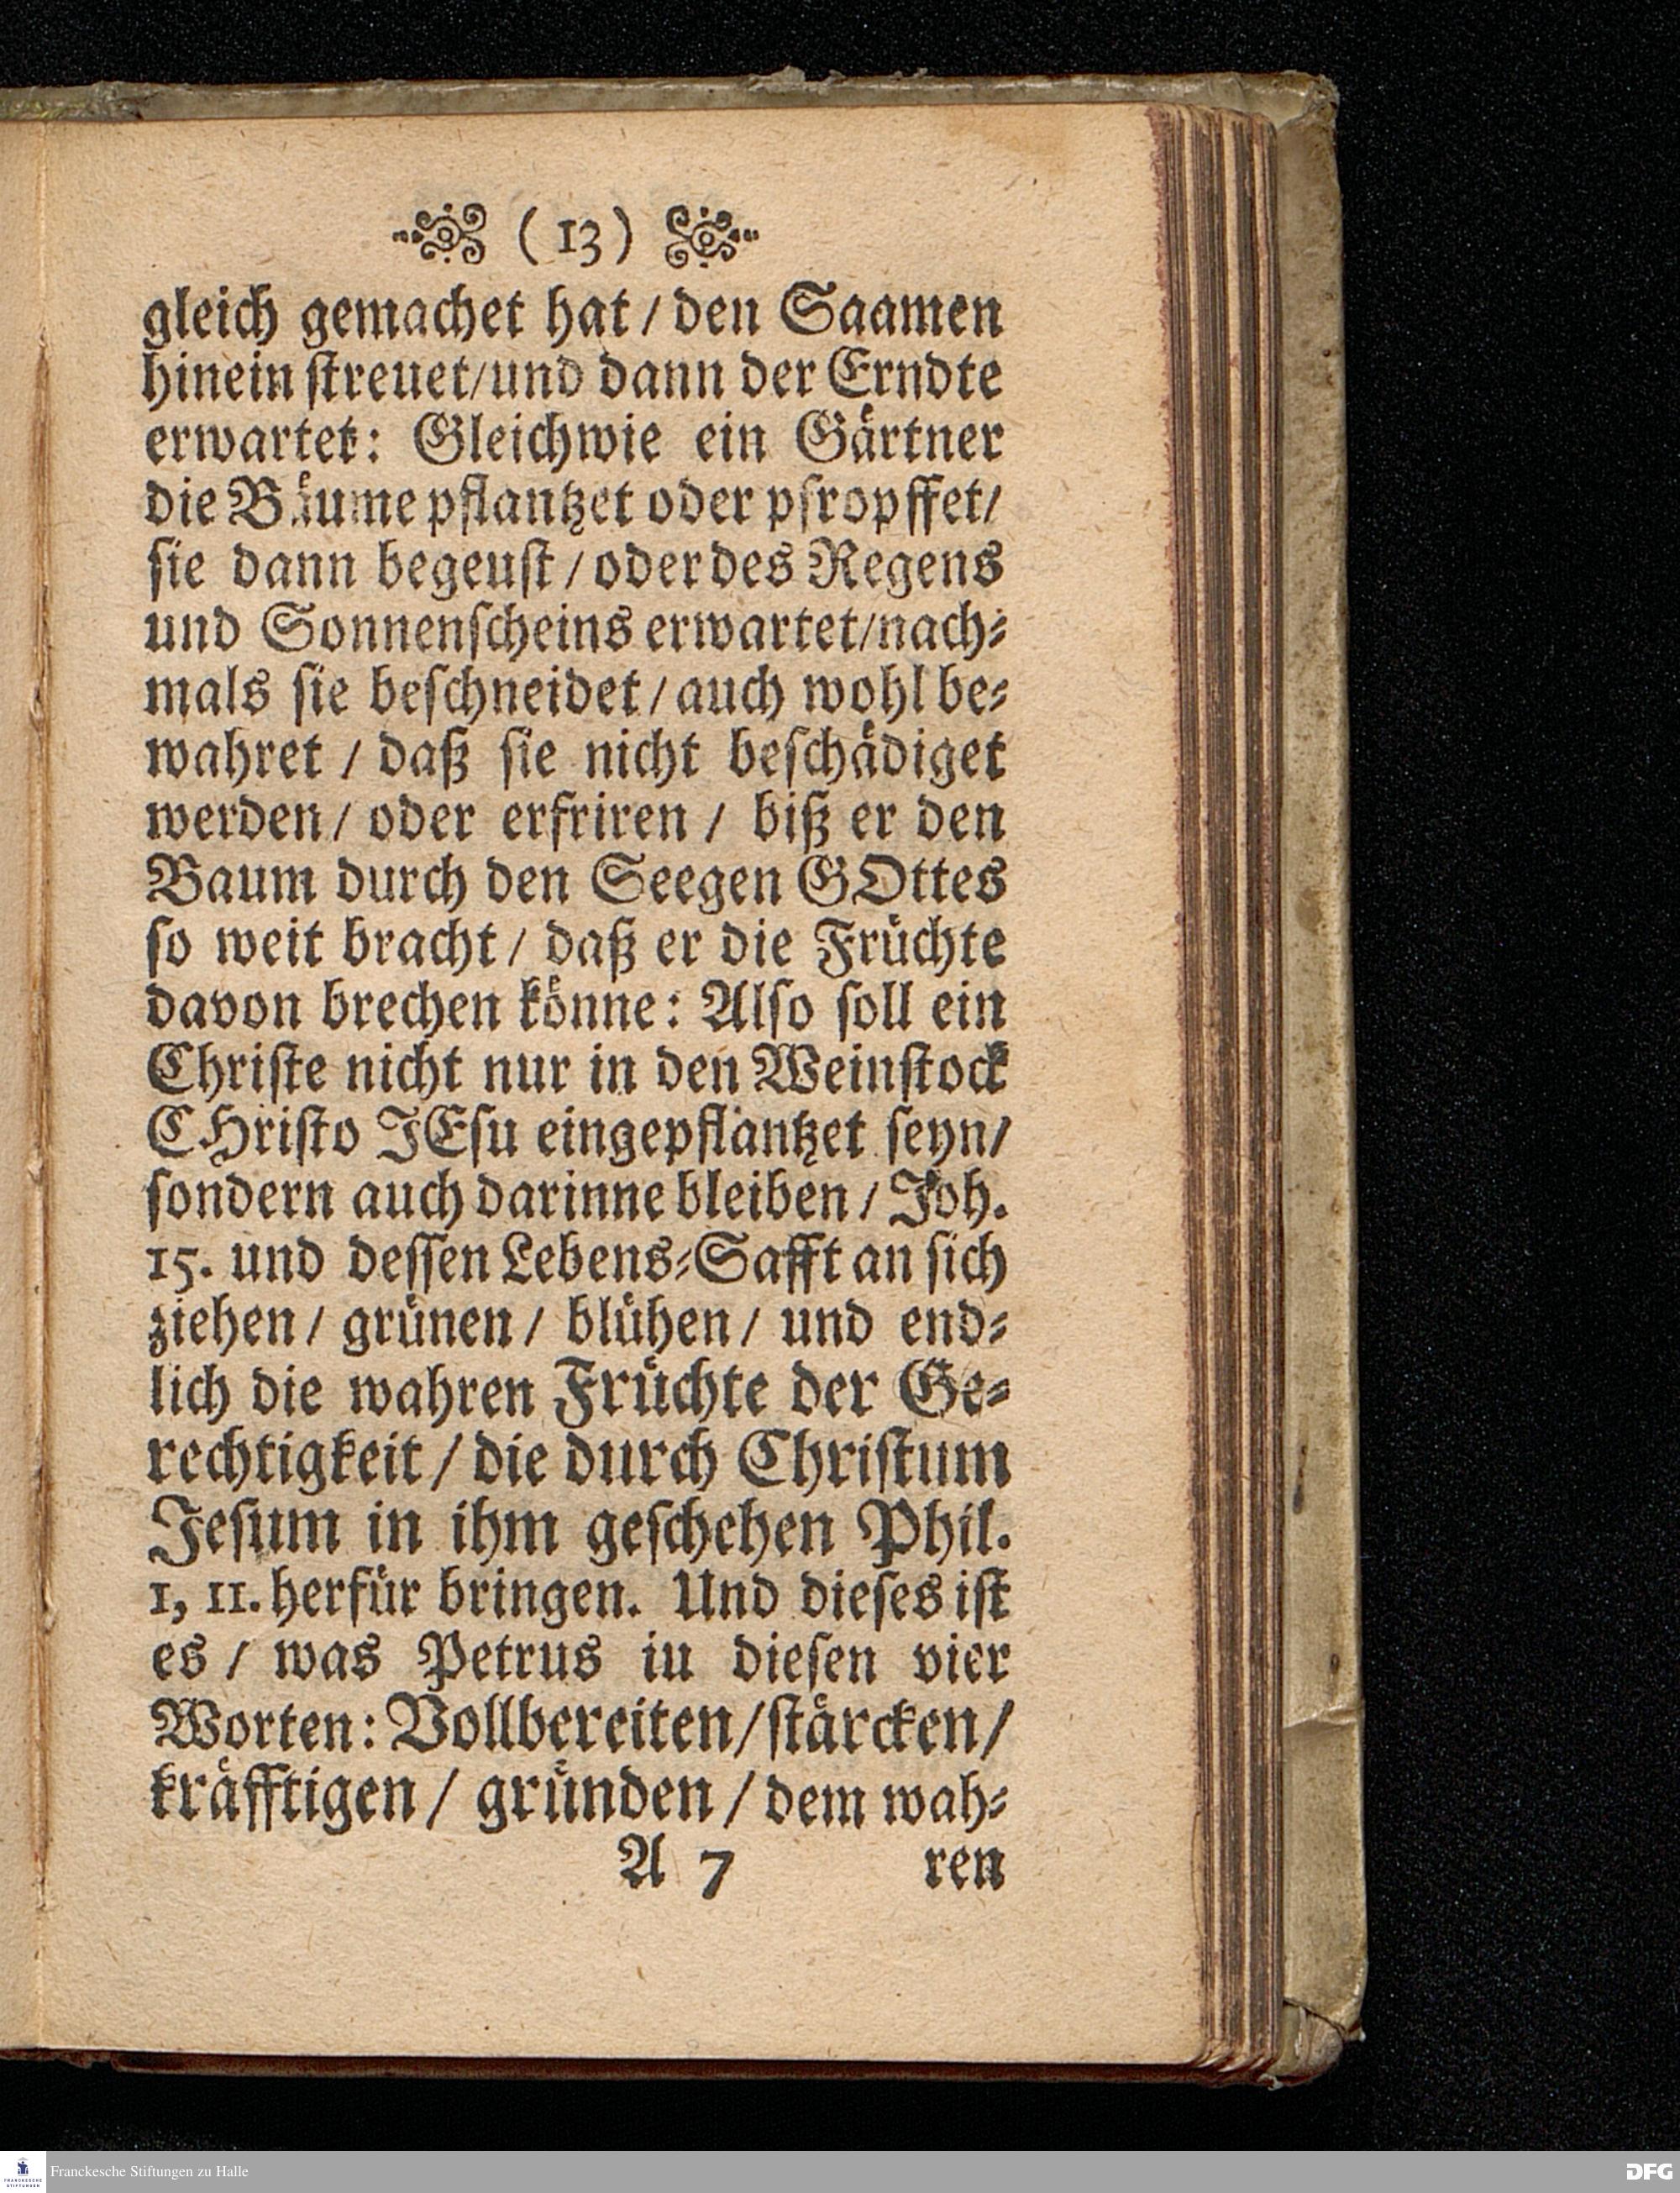 (13)
gleich gemachet hat / den Saamen
hinein streuet/und dann der Erndte
erwartet: Gleichwie ein Gärtner
die Bäume pflantzet oder psropffet/
sie dann begeust / oder des Regens
und Sonnenscheins erwartet/nach-
mals sie beschneidet / auch wohl be-
wahret / daß sie nicht beschädiget
werden / oder erfriren / biß er den
Baum durch den Seegen GOttes
so weit bracht / daß er die Früchte
davon brechen könne: Also soll ein
Christe nicht nur in den Weinstock
CHristo JEsu eingepflantzet seyn/
sondern auch darinne bleiben / Joh.
15. und dessen Lebens-Safft an sich
ziehen / grünen / blühen / und end-
lich die wahren Früchte der Ge-
rechtigkeit / die durch Christum
Jesum in ihm geschehen Phil.
1, 11. herfür bringen. Und dieses ist
es / was Petrus iu diesen vier
Worten: Vollbereiten/stärcken/
kräfftigen / gründen / dem wah-
A 7 ren
Franckesche Stiftungen zu Halle
DFG
FRANCKESCHE
STIFTUNGEN